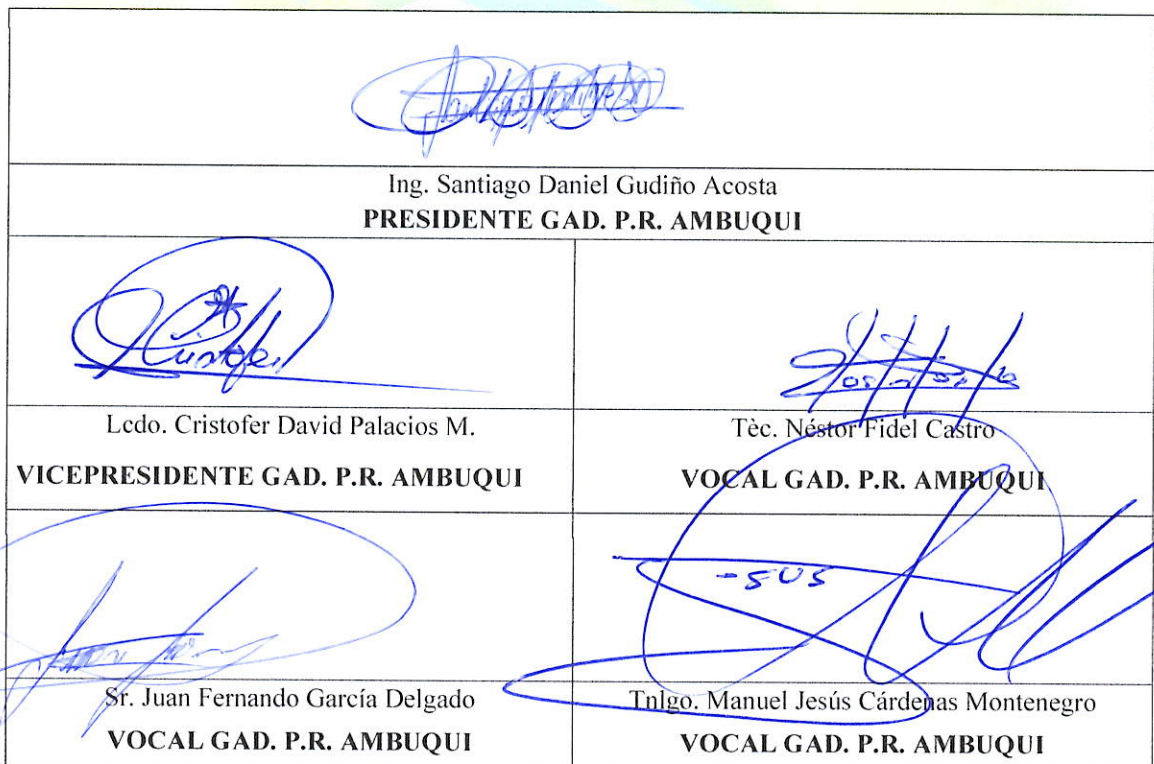 Ing. Santiago Daniel Gudiño Acosta
PRESIDENTE GAD. P.R. AMBUQUI
Cristofer
Lcdo. Cristofer David Palacios M.
VICEPRESIDENTE GAD. P.R. AMBUQUI
Tèc. Néstor Fidel Castro
VOCAL GAD. P.R. AMBUQUI
Sr. Juan Fernando García Delgado
VOCAL GAD. P.R. AMBUQUI
Tnlgo. Manuel Jesús Cárdenas Montenegro
VOCAL GAD. P.R. AMBUQUI